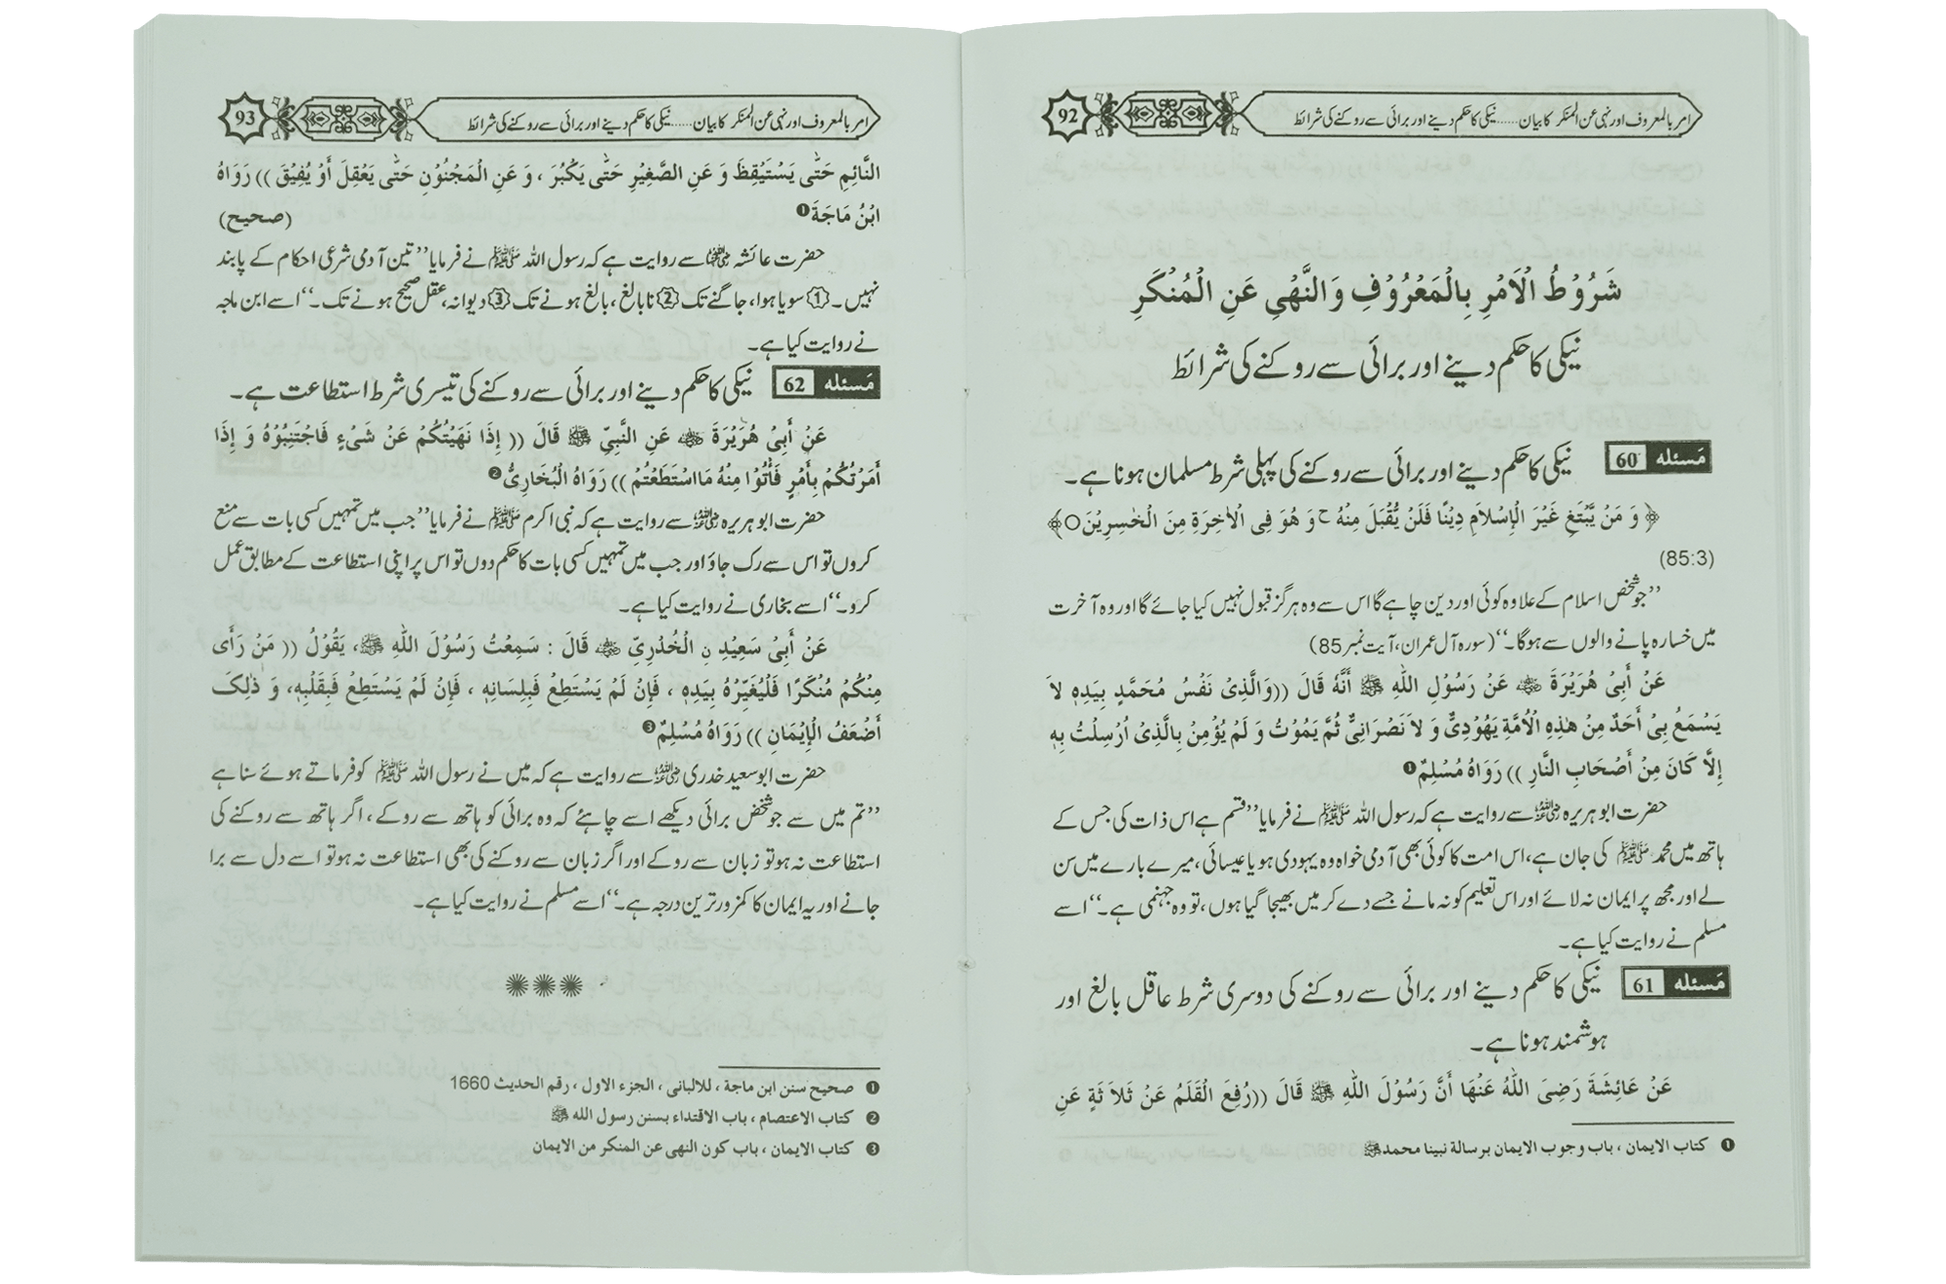 امر بالمعروف اور نہی عن المنکر کا بیان...... نیکی کا حکم دینے اور برائی سے روکنے کی شرائط
92
شَرُوْطُ الْاَمْرِ بِالْمَعْرُوْفِ وَالنَّهْيِ عَنِ الْمُنْكَرِ
نیکی کا حکم دینے اور برائی سے روکنے کی شرائط
مَسئله 60 نیکی کا حکم دینے اور برائی سے روکنے کی پہلی شرط مسلمان ہونا ہے۔
﴿ وَ مَنْ يَّبْتَغِ غَيْرَ الْإِسْلاَمِ دِيْنًا فَلَنْ يُّقْبَلَ مِنْهُ ج وَ هُوَ فِى الْاٰخِرَةِ مِنَ الْخٰسِرِيْنَ○﴾
(85:3)
’’جو شخص اسلام کے علاوہ کوئی اور دین چاہے گا اس سے وہ ہرگز قبول نہیں کیا جائے گا اور وہ آخرت
میں خسارہ پانے والوں سے ہوگا۔‘‘ (سورہ آل عمران، آیت نمبر 85)
عَنْ أَبِىْ هُرَيْرَةَ ﷺ عَنْ رَسُوْلِ اللّٰهِ ﷺ أَنَّهٗ قَالَ ((وَالَّذِىْ نَفْسُ مُحَمَّدٍ بِيَدِهٖ لاَ
يَسْمَعُ بِىْ أَحَدٌ مِنْ هٰذِهِ الْاُمَّةِ يَهُوْدِىٌّ وَ لاَ نَصْرَانِىٌّ ثُمَّ يَمُوْتُ وَ لَمْ يُؤْمِنْ بِالَّذِىْ اُرْسِلْتُ بِهٖ
إِلاَّ كَانَ مِنْ أَصْحَابِ النَّارِ )) رَوَاهُ مُسْلِمٌ❶
حضرت ابو ہریرہ رضی اللہ عنہ سے روایت ہے کہ رسول اللہ ﷺ نے فرمایا ’’قسم ہے اس ذات کی جس کے
ہاتھ میں محمد ﷺ کی جان ہے، اس امت کا کوئی بھی آدمی خواہ وہ یہودی ہو یا عیسائی، میرے بارے میں سن
لے اور مجھ پر ایمان نہ لائے اور اس تعلیم کو نہ مانے جسے دے کر میں بھیجا گیا ہوں، تو وہ جہنمی ہے۔‘‘ اسے
مسلم نے روایت کیا ہے۔
مَسئله 61 نیکی کا حکم دینے اور برائی سے روکنے کی دوسری شرط عاقل بالغ اور
ہوشمند ہونا ہے۔
عَنْ عَائِشَةَ رَضِىَ اللّٰهُ عَنْهَا أَنَّ رَسُوْلَ اللّٰهِ ﷺ قَالَ ((رُفِعَ الْقَلَمُ عَنْ ثَلاَ ثَةٍ عَنِ
❶ كتاب الايمان ، باب وجوب الايمان برسالة نبينا محمدﷺ
امر بالمعروف اور نہی عن المنکر کا بیان...... نیکی کا حکم دینے اور برائی سے روکنے کی شرائط
93
النَّائِمِ حَتّٰى يَسْتَيْقِظَ وَ عَنِ الصَّغِيْرِ حَتّٰى يَكْبُرَ ، وَ عَنِ الْمَجْنُوْنِ حَتّٰى يَعْقِلَ أَوْ يُفِيْقَ )) رَوَاهُ
ابْنُ مَاجَةَ❶ (صحيح)
حضرت عائشہ رضی اللہ عنہا سے روایت ہے کہ رسول اللہ ﷺ نے فرمایا ’’تین آدمی شرعی احکام کے پابند
نہیں۔ 1 سویا ہوا، جاگنے تک 2 نابالغ، بالغ ہونے تک 3 دیوانہ، عقل صحیح ہونے تک۔‘‘ اسے ابن ماجہ
نے روایت کیا ہے۔
مَسئله 62 نیکی کا حکم دینے اور برائی سے روکنے کی تیسری شرط استطاعت ہے۔
عَنْ أَبِىْ هُرَيْرَةَ ﷺ عَنِ النَّبِىِّ ﷺ قَالَ (( إِذَا نَهَيْتُكُمْ عَنْ شَىْءٍ فَاجْتَنِبُوْهُ وَ إِذَا
أَمَرْتُكُمْ بِأَمْرٍ فَأْتُوْا مِنْهُ مَااسْتَطَعْتُمْ )) رَوَاهُ الْبُخَارِىُّ❷
حضرت ابو ہریرہ رضی اللہ عنہ سے روایت ہے کہ نبی اکرم ﷺ نے فرمایا ’’جب میں تمہیں کسی بات سے منع
کروں تو اس سے رک جاؤ اور جب میں تمہیں کسی بات کا حکم دوں تو اس پر اپنی استطاعت کے مطابق عمل
کرو۔‘‘ اسے بخاری نے روایت کیا ہے۔
عَنْ أَبِىْ سَعِيْدِ نِ الْخُدْرِىِّ ﷺ قَالَ : سَمِعْتُ رَسُوْلَ اللّٰهِ ﷺ، يَقُوْلُ (( مَنْ رَأَى
مِنْكُمْ مُنْكَرًا فَلْيُغَيِّرْهُ بِيَدِهٖ ، فَإِنْ لَمْ يَسْتَطِعْ فَبِلِسَانِهٖ ، فَإِنْ لَمْ يَسْتَطِعْ فَبِقَلْبِهٖ، وَ ذٰلِكَ
أَضْعَفُ الْإِيْمَانِ )) رَوَاهُ مُسْلِمٌ❸
حضرت ابو سعید خدری رضی اللہ عنہ سے روایت ہے کہ میں نے رسول اللہ ﷺ کو فرماتے ہوئے سنا ہے
’’تم میں سے جو شخص برائی دیکھے اسے چاہئے کہ وہ برائی کو ہاتھ سے روکے، اگر ہاتھ سے روکنے کی
استطاعت نہ ہو تو زبان سے روکے اور اگر زبان سے روکنے کی بھی استطاعت نہ ہو تو اسے دل سے برا
جانے اور یہ ایمان کا کمزور ترین درجہ ہے۔‘‘ اسے مسلم نے روایت کیا ہے۔
❶ صحيح سنن ابن ماجة ، للالبانى ، الجزء الاول ، رقم الحديث 1660
❷ كتاب الاعتصام ، باب الاقتداء بسنن رسول الله ﷺ
❸ كتاب الايمان ، باب كون النهى عن المنكر من الايمان